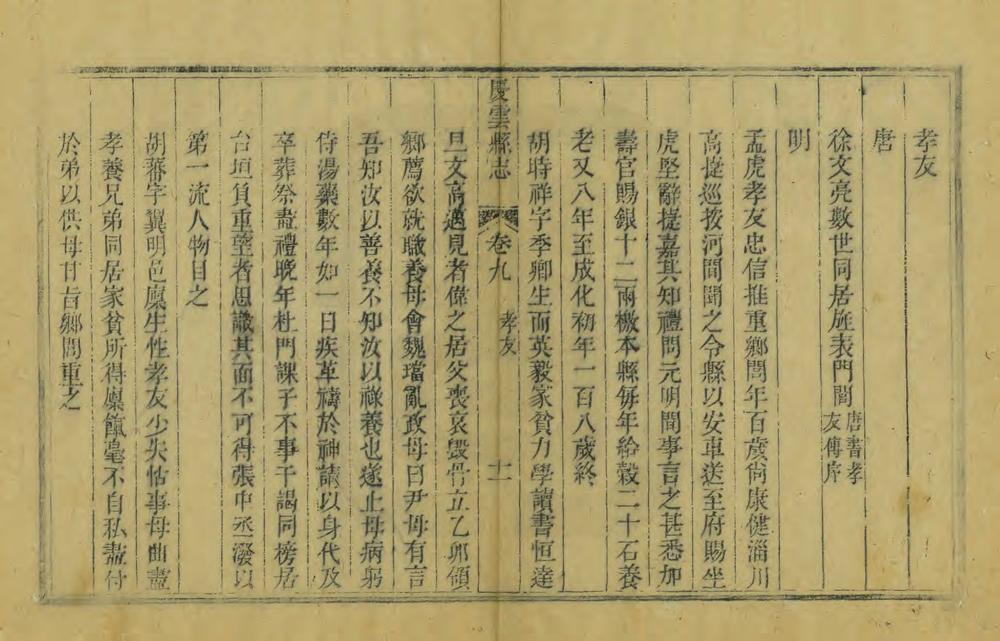 孝友
唐
徐文亮數世同居旌表門閭唐書孝友傳序
明
孟虎孝友忠信推重鄉閭年百歲尙康健淄川
高捷巡按河間聞之令縣以安車送至府賜坐
虎堅辭捷嘉其知禮問元明間事言之甚悉加
壽官賜銀十二兩檄本縣每年給穀二十石養
老又八年至成化初年一百八歲終
胡時祥字季卿生而英毅家貧力學讀書恒達
慶雲縣志 卷九 孝友 十一
旦文高邁見者偉之居父喪哀毀骨立乙卯領
鄉薦欲就職養母會魏璫亂政母曰尹母有言
吾知汝以善養不知汝以祿養也遂止母病躬
侍湯藥數年如一日疾革禱於神請以身代及
卒葬祭盡禮晚年杜門課子不事干謁同榜居
台垣負重望者思識其面不可得張中丞潑以
第一流人物目之
胡蕃字翼明邑廩生性孝友少失怙事母曲盡
孝養兄弟同居家貧所得廩餼毫不自私盡付
於弟以供母甘旨鄉閭重之